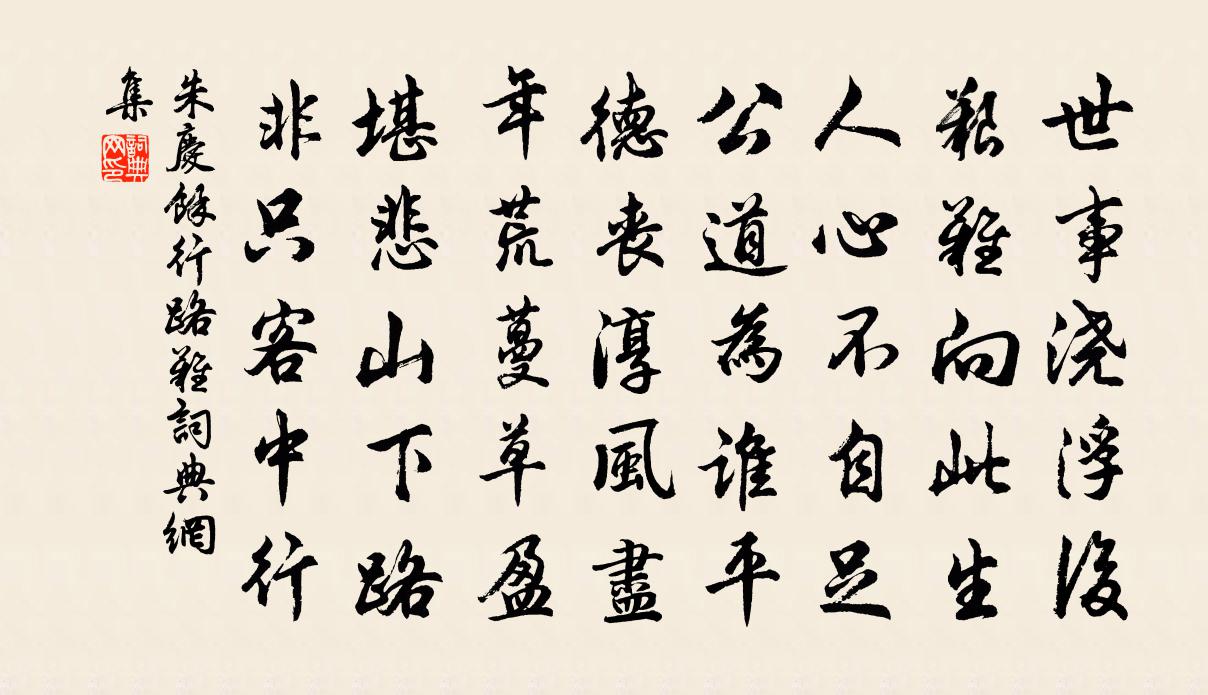 世事浇浮後
艱難向此生
人心不自足
公道為誰平
德喪淳風盡
年荒蔓草盈
堪悲山下路
非只客中行
朱慶餘行路難詞典網
集
詞典網印